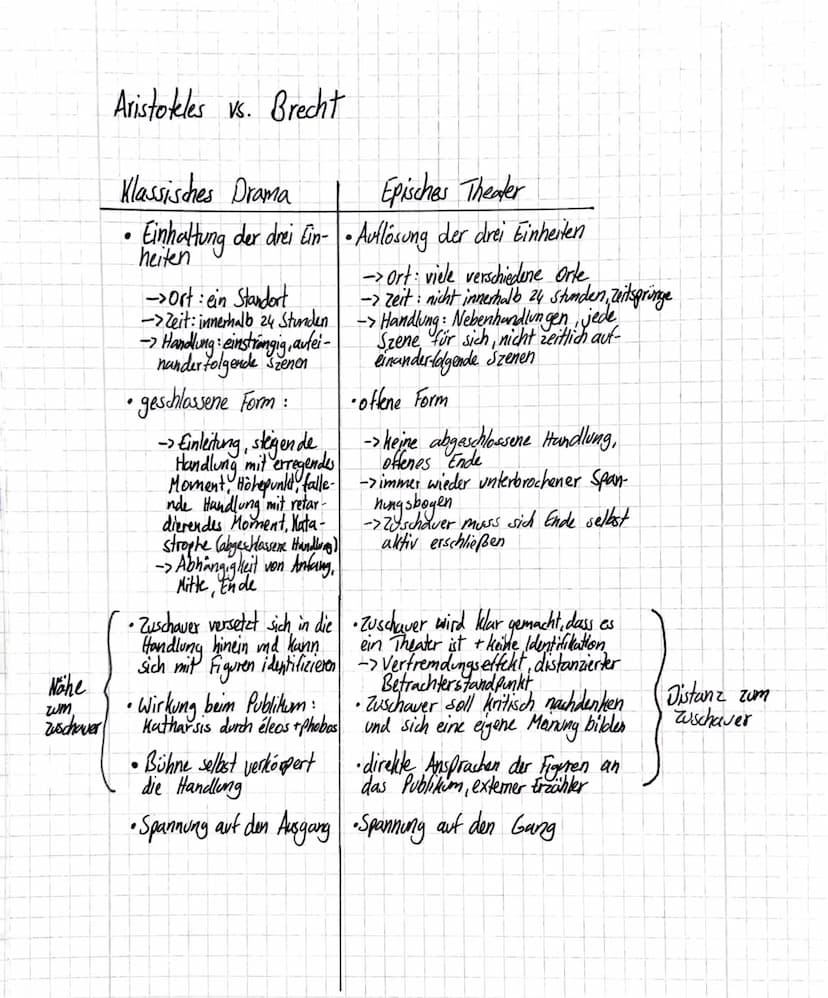 Aristoteles vs. Brecht
Klassisches Drama
• Einhaltung der drei Ein-
heiten
-> Ort: ein Standort
-> Zeit: innerhalb 24 Stunden
-> Handlung: einsträngig, aufei-
nanderfolgende Szenen
• geschlossene Form:
-> Einleitung, steigende
Handlung mit erregendes
Moment, Höhepunkt, falle-
nde Handlung mit retar-
dierendes Moment, Kata-
strophe (abgeschlossene Handlung)
-> Abhängigkeit von Anfang,
Mitte, Ende
Nähe
zum
Zuschauer
• Zuschauer versetzt sich in die
Handlung hinein und kann
sich mit Figuren identifizieren
• Wirkung beim Publikum:
Katharsis durch éleos + phobos
• Bühne selbst verkörpert
die Handlung
• Spannung auf den Ausgang
Episches Theater
• Auflösung der drei Einheiten
-> Ort: viele verschiedene Orte
-> Zeit: nicht innerhalb 24 Stunden, Zeitsprünge
-> Handlung: Nebenhandlungen, jede
Szene für sich, nicht zeitlich auf-
einanderfolgende Szenen
• offene Form
-> keine abgeschlossene Handlung,
offenes Ende
-> immer wieder unterbrochener Span-
nungsbogen
-> Zuschauer muss sich Ende selbst
aktiv erschließen
• Zuschauer wird klar gemacht, dass es
ein Theater ist + keine Identifikation
-> Verfremdungseffekt, distanzierter
Betrachterstandpunkt
• Zuschauer soll kritisch nachdenken
und sich eine eigene Meinung bilden
• direkte Ansprachen der Figuren an
das Publikum, externer Erzähler
Distanz zum
Zuschauer
• Spannung auf den Gang